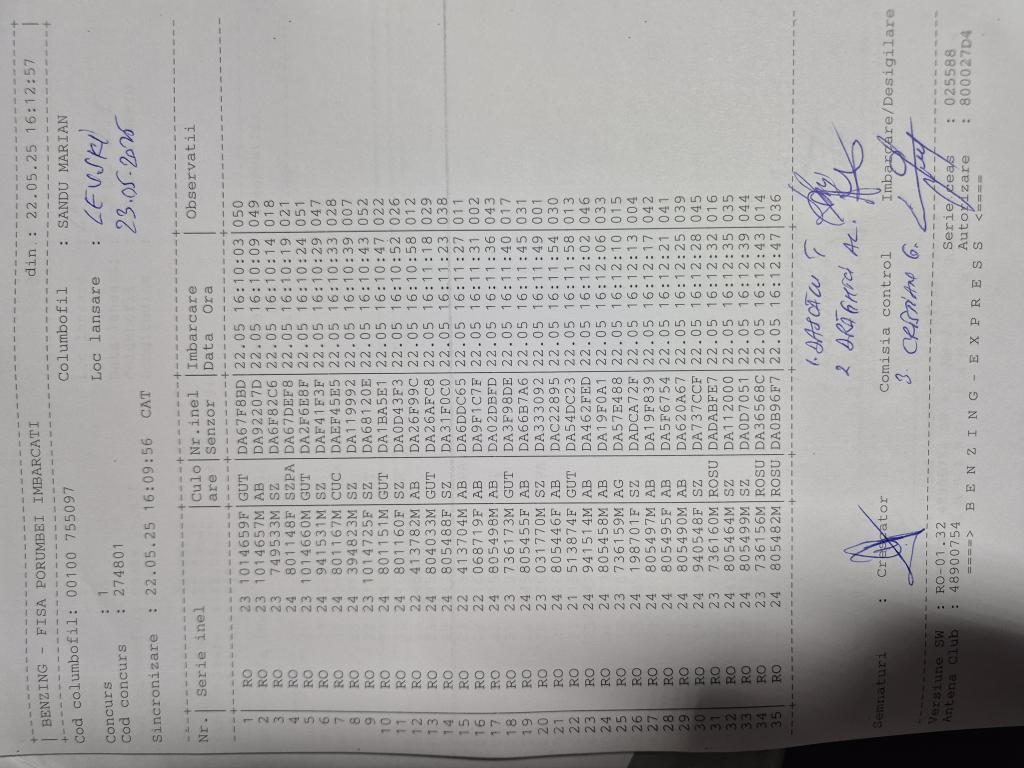 BENZING - FISA PORUMBEI IMBARCATI din.: 22.05.25 16:12:57
Cod columbofil: 00100 755097 Columbofil : SANDU MARIAN
Concurs : 1 Loc lansare : LEVSKI
Cod concurs : 274801 23.05.2025
Sincronizare : 22.05.25 16:09:56 CAT
Nr. | Serie inel | Culo | Nr.inel | Imbarcare | Observatii
are | Senzor | Data Ora
1 RO 23 1014659F GUT DA67F8BD 22.05 16:10:03 050
2 RO 23 1014657M AB DA92207D 22.05 16:10:09 049
3 RO 24 749533M SZ DA6F82C6 22.05 16:10:14 018
4 RO 24 801148F SZPA DA67DEF8 22.05 16:10:19 021
5 RO 23 1014660M GUT DA2F6E8F 22.05 16:10:24 051
6 RO 24 941531M SZ DAF41F3F 22.05 16:10:29 047
7 RO 24 801167M CUC DAEF45E5 22.05 16:10:33 028
8 RO 24 394823M SZ DA119992 22.05 16:10:39 007
9 RO 23 1014725F SZ DA68120E 22.05 16:10:43 052
10 RO 24 801151M GUT DA1BA5E1 22.05 16:10:47 022
11 RO 24 801160F SZ DA0D43F3 22.05 16:10:52 026
12 RO 22 413782M AB DA26F99C 22.05 16:10:58 012
13 RO 24 804033M GUT DA26AFC8 22.05 16:11:18 029
14 RO 24 805488F SZ DA31F0C0 22.05 16:11:23 038
15 RO 22 413704M AB DA6DDC65 22.05 16:11:27 011
16 RO 22 068719F AB DA9F1C7F 22.05 16:11:31 002
17 RO 24 805498M AB DA02DBFD 22.05 16:11:36 043
18 RO 23 736173M GUT DA3F98DE 22.05 16:11:40 017
19 RO 24 805455F AB DA66B7A6 22.05 16:11:45 031
20 RO 23 031770M SZ DA333092 22.05 16:11:49 001
21 RO 24 805446F AB DAC22895 22.05 16:11:54 030
22 RO 21 513874F GUT DA54DC23 22.05 16:11:58 013
23 RO 24 941514M AB DA462FED 22.05 16:12:02 046
24 RO 24 805458M AB DA19F0A1 22.05 16:12:06 033
25 RO 23 736159M AG DA57E488 22.05 16:12:10 015
26 RO 24 198701F SZ DADCA72F 22.05 16:12:13 004
27 RO 24 805497M AB DA19F839 22.05 16:12:17 042
28 RO 24 805495F AB DA5F6754 22.05 16:12:21 041
29 RO 24 805490M AB DA620A67 22.05 16:12:25 039
30 RO 24 940548F SZ DA737CCF 22.05 16:12:28 045
31 RO 23 736160M ROSU DADABFE7 22.05 16:12:32 016
32 RO 24 805464M SZ DA112000 22.05 16:12:35 035
33 RO 24 805499M SZ DA0D7051 22.05 16:12:39 044
34 RO 23 736156M ROSU DA36568C 22.05 16:12:43 014
35 RO 24 805482M ROSU DA0B96F7 22.05 16:12:47 036
1.
2
Semnaturi : Crescator Comisia control Imbarcare/Desigilare
3.
Versiune SW : RO-001.32 Serie ceas : 025588
Antena Club : 48900754 Autorizare : 800027D4
====> B E N Z I N G - E X P R E S S <====